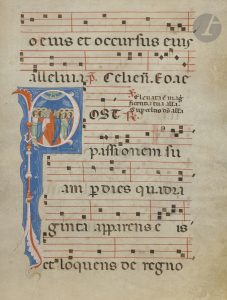 o eius et occursus eius
alleluia. Cel hest. Eo ac
POST
passionem su
am per dies quadra
ginta apparens e is
et loquens de regno